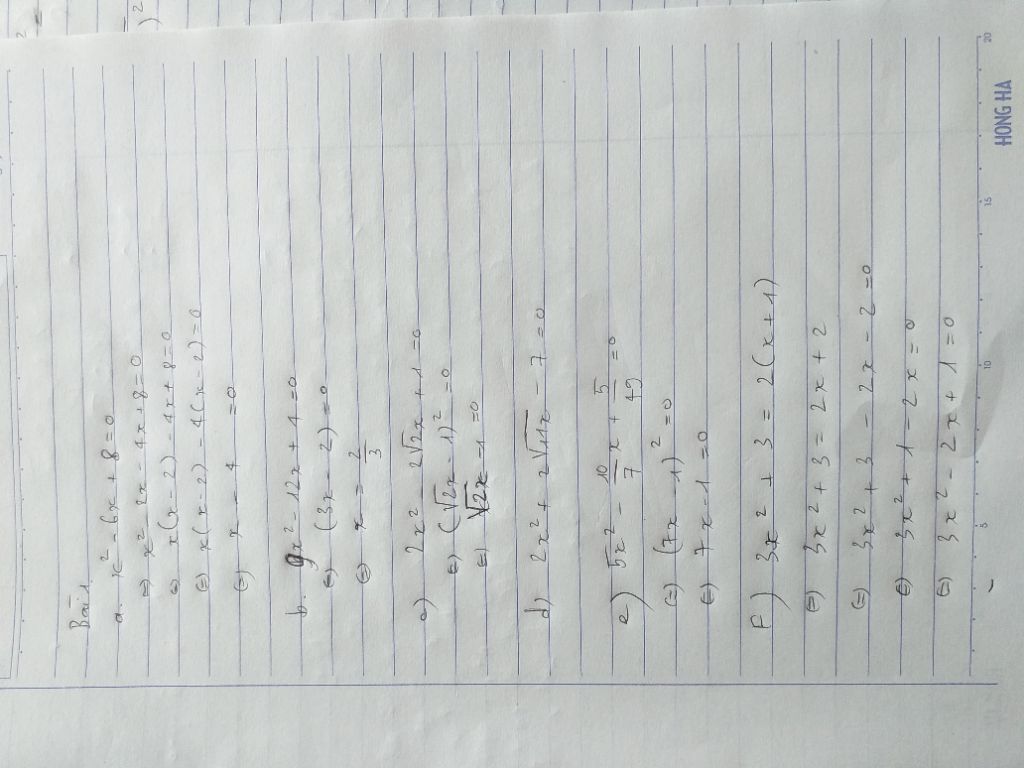 Bài 1.
a. x² - 6x + 8 = 0
=) x² - 2x - 4x + 8 = 0
=) x(x - 2) - 4x + 8 = 0
(=) x(x - 2) - 4(x - 2) = 0
(=) x - 4 = 0
b. 9x² - 12x + 4 = 0
(=) (3x - 2) = 0
(=) x = 2/3
c) 2x² - 2√2x + 1 = 0
=) (√2x - 1)² = 0
=) √2x - 1 = 0
d) 2x² + 2√11x - 7 = 0
e) 5x² - 10/7 x + 5/49 = 0
(=) (7x - 1)² = 0
(=) 7x - 1 = 0
F) 3x² + 3 = 2(x + 1)
(=) 3x² + 3 = 2x + 2
(=) 3x² + 3 - 2x - 2 = 0
(=) 3x² + 1 - 2x = 0
(=) 3x² - 2x + 1 = 0
5 10 15 20
HONG HA